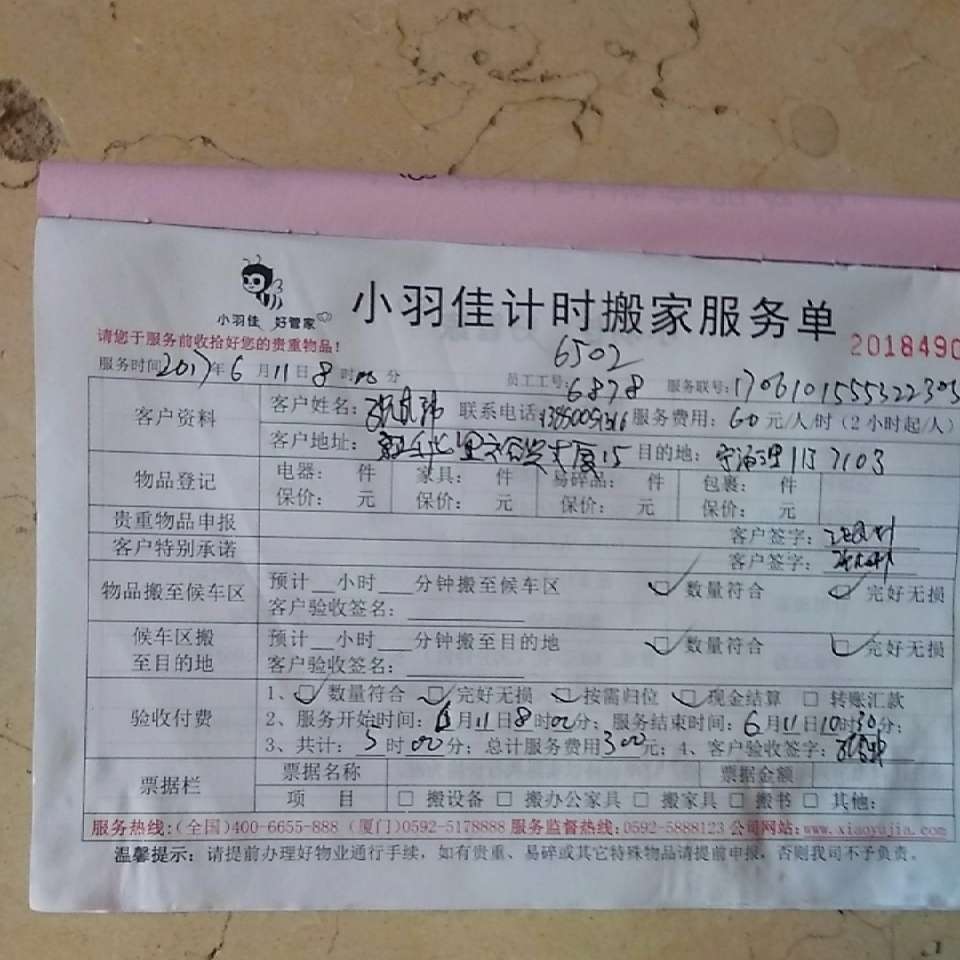 小羽佳 好管家
小羽佳计时搬家服务单
请您于服务前收拾好您的贵重物品!
2018490
6502
服务时间2017年6月11日8时00分 员工工号:6878 服务联号:1706101555322303
客户资料 客户姓名: 联系电话: 服务费用:60元/人/时(2小时起/人)
客户地址: 目的地: 113 7103
物品登记 电器: 件 家具: 件 易碎品: 件 包裹: 件
保价: 元 保价: 元 保价: 元 保价: 元
贵重物品申报 客户签字:
客户特别承诺 客户签字:
物品搬至候车区 预计__小时___分钟搬至候车区 数量符合 完好无损
客户验收签名:
候车区搬至目的地 预计__小时___分钟搬至目的地 数量符合 完好无损
客户验收签名:
验收付费 1、数量符合 完好无损 按需归位 现金结算 □ 转账汇款
2、服务开始时间:6月11日8时00分;服务结束时间:6月11日10时30分;
3、共计:5时00分;总计服务费用300元;4、客户验收签字:
票据栏 票据名称 票据金额
项 目 □ 搬设备 □ 搬办公家具 □ 搬家具 □ 搬书 □ 其他:
服务热线:(全国)400-6655-888 (厦门)0592-5178888 服务监督热线:0592-5888123 公司网站:www.xiaoyujia.com
温馨提示:请提前办理好物业通行手续,如有贵重、易碎或其它特殊物品请提前申报,否则我司不予负责。